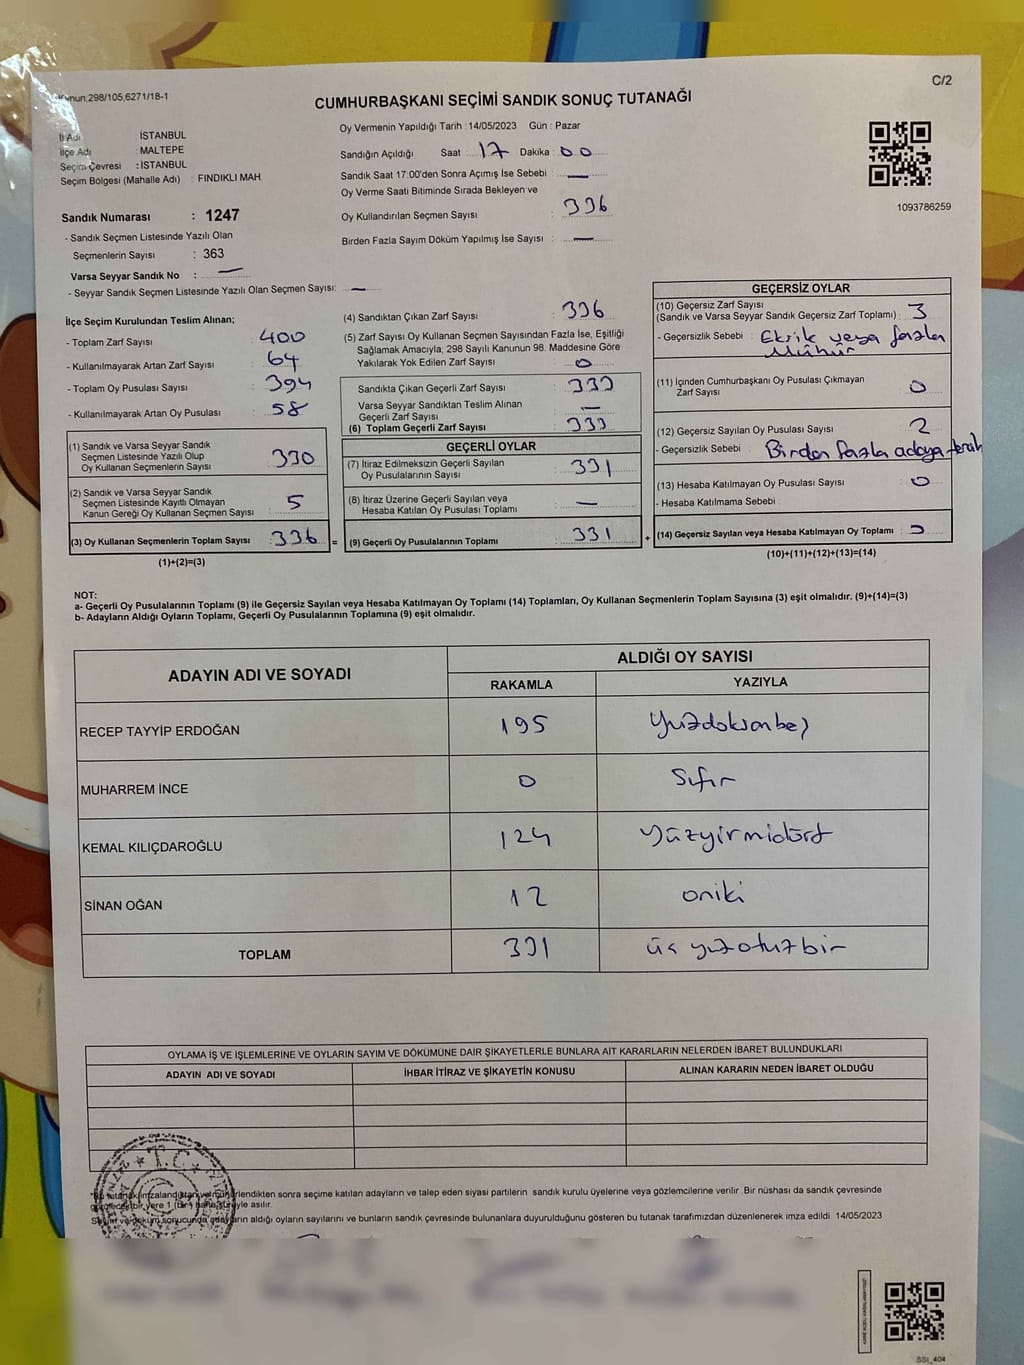 C/2
Kanun,298/105,6271/18-1
CUMHURBAŞKANI SEÇİMİ SANDIK SONUÇ TUTANAĞI
İl Adı : İSTANBUL
İlçe Adı : MALTEPE
Seçim Çevresi : İSTANBUL
Seçim Bölgesi (Mahalle Adı) : FINDIKLI MAH.
Sandık Numarası : 1247
- Sandık Seçmen Listesinde Yazılı Olan
Seçmenlerin Sayısı : 363
Varsa Seyyar Sandık No : —
- Seyyar Sandık Seçmen Listesinde Yazılı Olan Seçmen Sayısı: —
Oy Vermenin Yapıldığı Tarih : 14/05/2023 Gün : Pazar
Sandığın Açıldığı Saat : 17 Dakika : 00
Sandık Saat 17:00'den Sonra Açımış İse Sebebi : —
Oy Verme Saati Bitiminde Sırada Bekleyen ve
Oy Kullandırılan Seçmen Sayısı : 336
Birden Fazla Sayım Döküm Yapılmış İse Sayısı : —
1093786259
İlçe Seçim Kurulundan Teslim Alınan;
- Toplam Zarf Sayısı : 400
- Kullanılmayarak Artan Zarf Sayısı : 64
- Toplam Oy Pusulası Sayısı : 394
- Kullanılmayarak Artan Oy Pusulası : 58
(1) Sandık ve Varsa Seyyar Sandık
Seçmen Listesinde Yazılı Olup
Oy Kullanan Seçmenlerin Sayısı : 330
(2) Sandık ve Varsa Seyyar Sandık
Seçmen Listesinde Kayıtlı Olmayan
Kanun Gereği Oy Kullanan Seçmen Sayısı : 5
(3) Oy Kullanan Seçmenlerin Toplam Sayısı : 336 =
(1)+(2)=(3)
(4) Sandıktan Çıkan Zarf Sayısı : 336
(5) Zarf Sayısı Oy Kullanan Seçmen Sayısından Fazla İse, Eşitliği
Sağlamak Amacıyla; 298 Sayılı Kanunun 98. Maddesine Göre
Yakılarak Yok Edilen Zarf Sayısı : 0
Sandıkta Çıkan Geçerli Zarf Sayısı : 333
Varsa Seyyar Sandıktan Teslim Alınan
Geçerli Zarf Sayısı : —
(6) Toplam Geçerli Zarf Sayısı : 333
GEÇERLİ OYLAR
(7) İtiraz Edilmeksizin Geçerli Sayılan
Oy Pusulasının Sayısı : 331
(8) İtiraz Üzerine Geçerli Sayılan veya
Hesaba Katılan Oy Pusulası Toplamı : —
(9) Geçerli Oy Pusulalarının Toplamı : 331 +
GEÇERSİZ OYLAR
(10) Geçersiz Zarf Sayısı
(Sandık ve Varsa Seyyar Sandık Geçersiz Zarf Toplamı) : 3
- Geçersizlik Sebebi : Eksik veya fazla
Mühür
(11) İçinden Cumhurbaşkanı Oy Pusulası Çıkmayan
Zarf Sayısı : 0
(12) Geçersiz Sayılan Oy Pusulası Sayısı : 2
- Geçersizlik Sebebi : Birden fazla adaya tercih
(13) Hesaba Katılmayan Oy Pusulası Sayısı : 0
- Hesaba Katılmama Sebebi :
(14) Geçersiz Sayılan veya Hesaba Katılmayan Oy Toplamı :
(10)+(11)+(12)+(13)=(14)
NOT:
a- Geçerli Oy Pusulalarının Toplamı (9) ile Geçersiz Sayılan veya Hesaba Katılmayan Oy Toplamı (14) Toplamları, Oy Kullanan Seçmenlerin Toplam Sayısına (3) eşit olmalıdır. (9)+(14)=(3)
b- Adayların Aldığı Oyların Toplamı, Geçerli Oy Pusulalarının Toplamına (9) eşit olmalıdır.
ADAYIN ADI VE SOYADI ALDIĞI OY SAYISI
RAKAMLA YAZIYLA
RECEP TAYYİP ERDOĞAN 195 Yüzdoksanbeş
MUHARREM İNCE 0 Sıfır
KEMAL KILIÇDAROĞLU 124 Yüzyirmidört
SİNAN OĞAN 12 oniki
TOPLAM 331 üç yüzotuzbir
OYLAMA İŞ VE İŞLEMLERİNE VE OYLARIN SAYIM VE DÖKÜMÜNE DAİR ŞİKAYETLERLE BUNLARA AİT KARARLARIN NELERDEN İBARET BULUNDUKLARI
ADAYIN ADI VE SOYADI İHBAR İTİRAZ VE ŞİKAYETİN KONUSU ALINAN KARARIN NEDEN İBARET OLDUĞU
T.C.
*Bu tutanak imzalandıktan ve mühürlendikten sonra seçime katılan adayların ve talep eden siyasi partilerin sandık kurulu üyelerine veya gözlemcilerine verilir. Bir nüshası da sandık çevresinde
görülecek bir yere 1 (bir) hafta süreyle asılır.
Sayım ve döküm sonucunda adayların aldığı oyların sayılarını ve bunların sandık çevresinde bulunanlara duyurulduğunu gösteren bu tutanak tarafımızdan düzenlenerek imza edildi. 14/05/2023
SSI_404